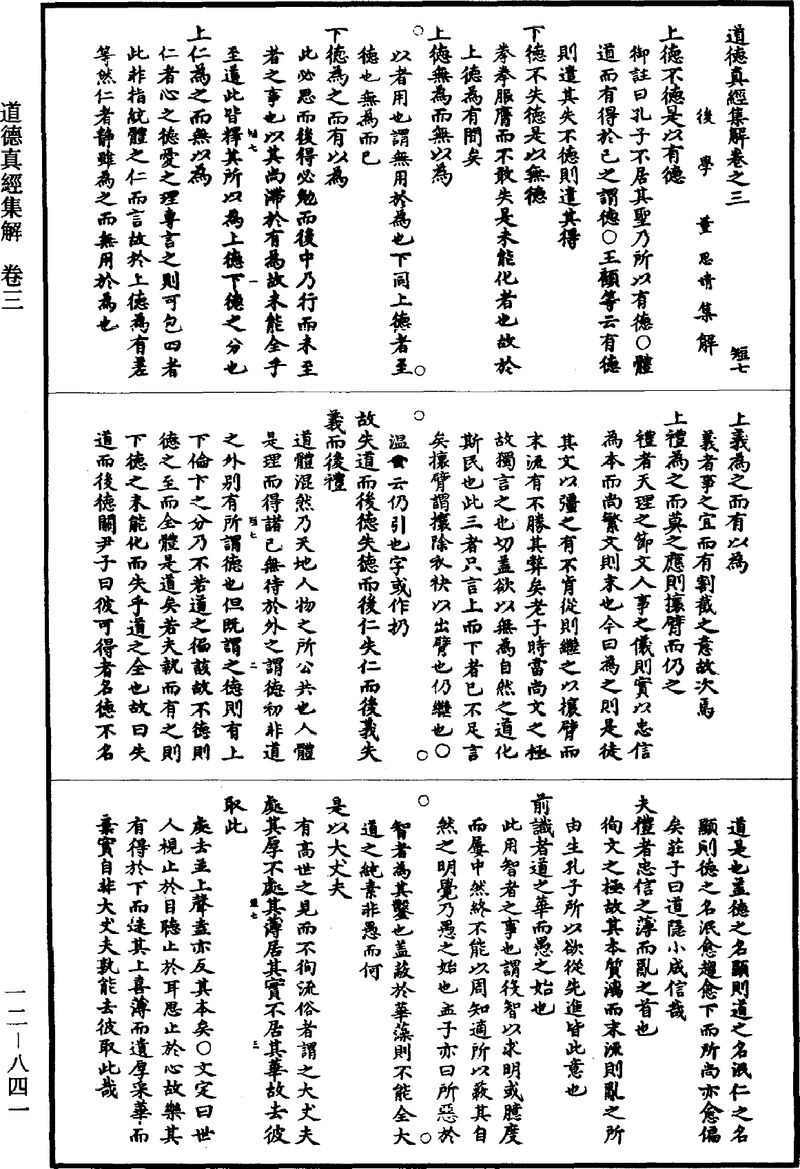 道德真經集解卷之三
後學董思靖集解
短七
上德不德是以有德
御註曰孔子不居其聖乃所以有德○體
道而有得於己之謂德○王顧等云有德
則遣其失不德則遣其得
下德不失德是以無德
拳拳服膺而不敢失是未能化者也故於
上德為有間矣
上德無為而無以為
以者用也謂無用於為也下同上德者至
德也無為而已
下德為之而有以為
此必思而後得必勉而後中乃行而未至
者之事也以其尚滯於有為故未能全乎
短七
一
至道此皆釋其所以為上德下德之分也
上仁為之而無以為
仁者心之德愛之理專言之則可包四者
此非指統體之仁而言故於上德為有差
等然仁者靜雖為之而無用於為也
上義為之而有以為
義者事之宜而有割截之意故次焉
上禮為之而莫之應則攘臂而仍之
禮者天理之節文人事之儀則實以忠信
為本而尚繁文則末也今曰為之則是徒
其文以彊之有不肯從則繼之以攘臂而
末流有不勝其弊矣老子時當尚文之極
故獨言之也切蓋欲以無為自然之道化
斯民也此三者只言上而下者已不足言
矣攘臂謂攘除衣袂以出臂也仍繼也○
溫公云仍引也字或作扔
故失道而後德失德而後仁失仁而後義失
義而後禮
道體混然乃天地人物之所公共也人體
是理而得諸己無待於外之謂德初非道
短七
二
之外別有所謂德也但既謂之德則有上
下倫卞之分乃不若道之徧該故不德則
德之至而全體是道矣若夫執而有之則
下德之未能化而失乎道之全也故曰失
道而後德關尹子曰彼可得者名德不名
道是也蓋德之名顯則道之名泯仁之名
顯則德之名泯愈趨愈下而所尚亦愈偏
矣莊子曰道隱小成信哉
夫禮者忠信之薄而亂之首也
徇文之極故其本質漓而末流則亂之所
由生孔子所以欲從先進皆此意也
前識者道之華而愚之始也
此用智者之事也謂役智以求明或臆度
而屢中然終不能以周知適所以蔽其自
然之明覺乃愚之始也孟子亦曰所惡於
智者為其鑿也蓋蔽於華藻則不能全大
道之純素非愚而何
是以大丈夫
有高世之見而不徇流俗者謂之大丈夫
處其厚不處其薄居其實不居其華故去彼
短七
三
取此
處去並上聲蓋亦反其本矣○文定曰世
人視止於目聽止於耳思止於心故樂其
有得於下而迷其上喜薄而遺厚采華而
棄實自非大丈夫孰能去彼取此哉
道德真經集解 卷三
一二—八四一